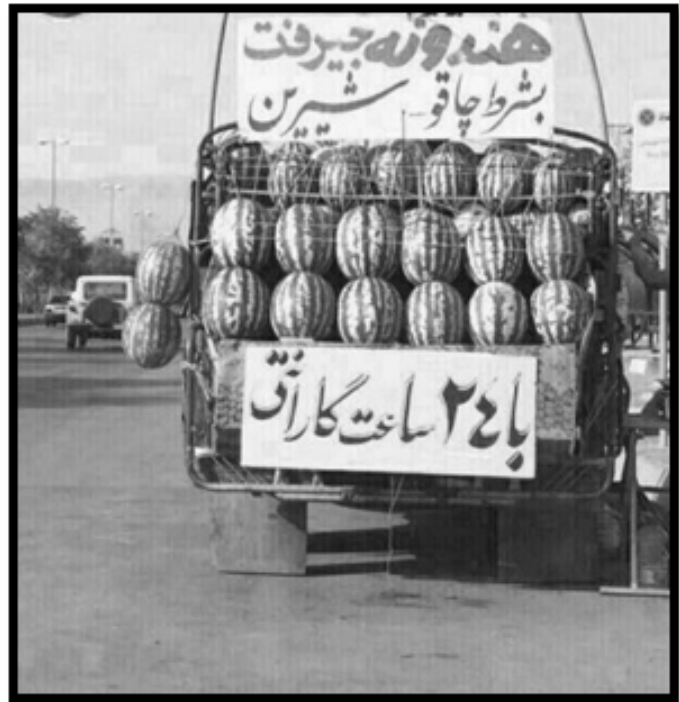 هندونه جیرفت
بشرط چاقو - شیرین
با ۲٤ ساعت گارانتی